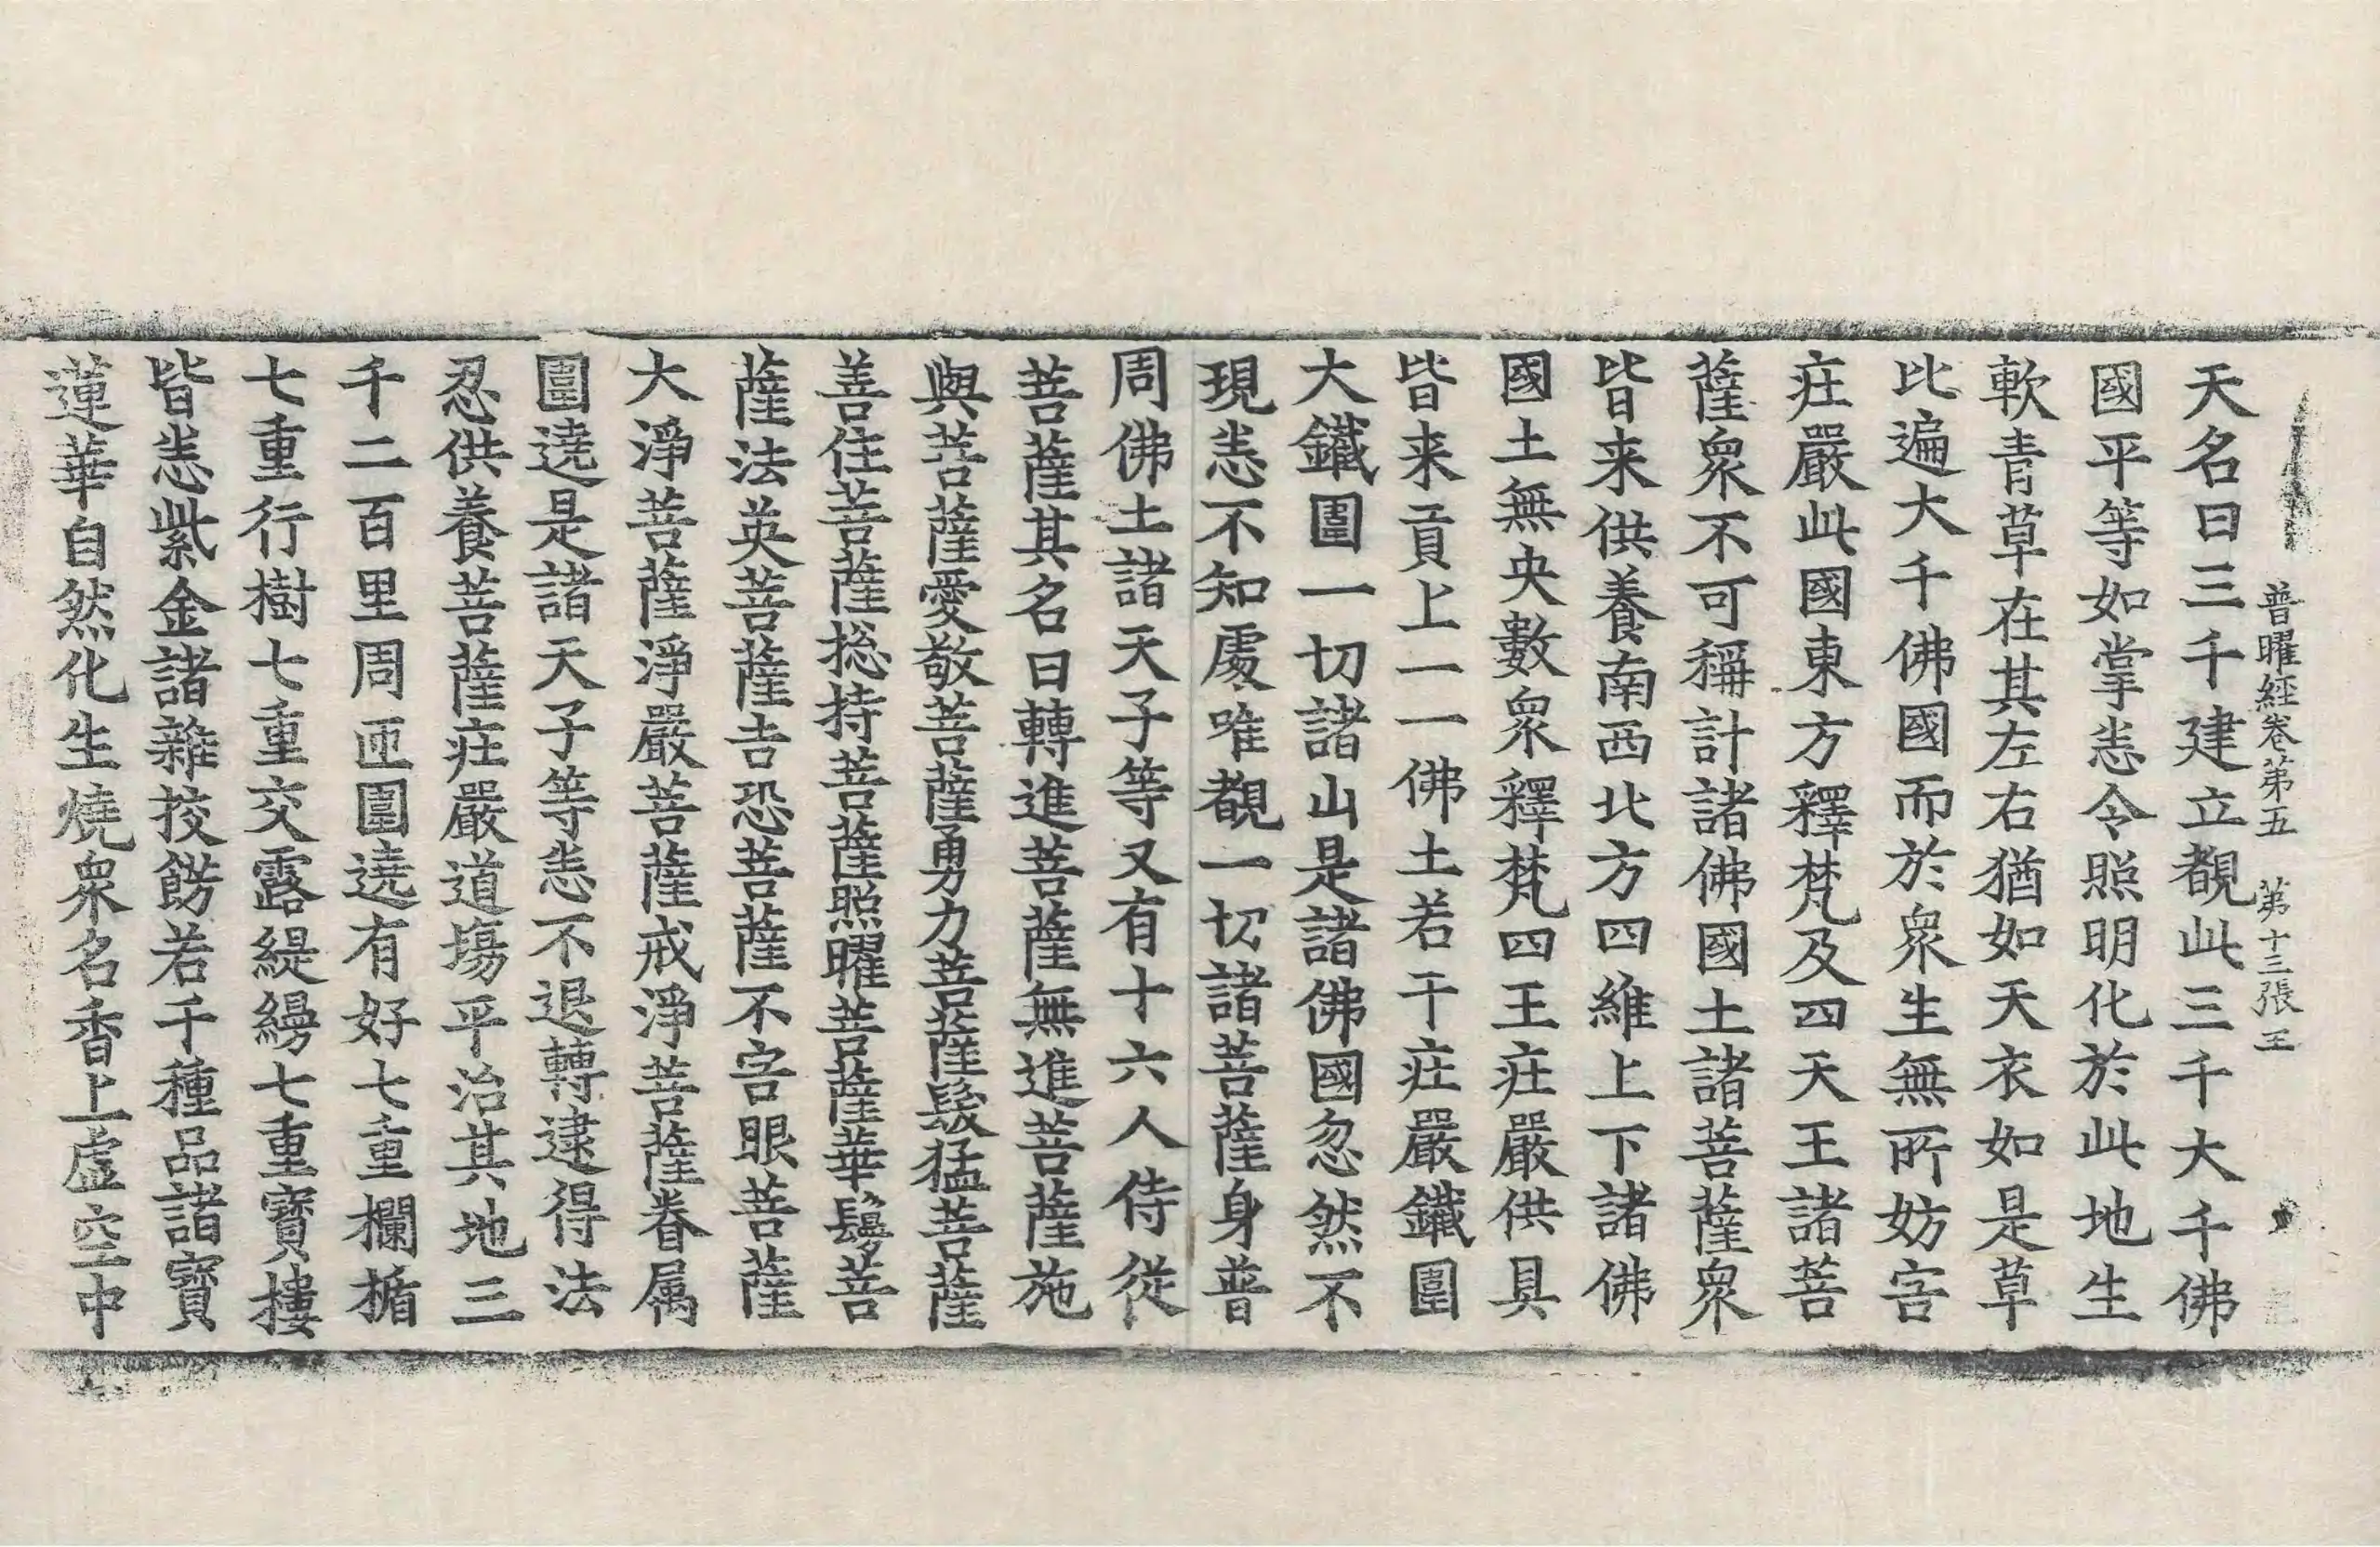 普曜經卷第五　第十三張　王
天名曰三千建立覩此三千大千佛
國平等如掌悉令照明化於此地生
軟青草在其左右猶如天衣如是草
比遍大千佛國而於衆生無所妨害
莊嚴此國東方釋梵及四天王諸菩
薩衆不可稱計諸佛國土諸菩薩衆
皆来供養南西北方四維上下諸佛
國土無央數衆釋梵四王莊嚴供具
皆来貢上一一佛土若干莊嚴鐵圍
大鐵圍一切諸山是諸佛國忽然不
現悉不知處唯覩一切諸菩薩身普
周佛土諸天子等又有十六人侍從
菩薩其名曰轉進菩薩無進菩薩施
與菩薩愛敬菩薩勇力菩薩髮猛菩薩
善住菩薩捴持菩薩照曜菩薩華鬘菩
薩法英菩薩吉恐菩薩不害眼菩薩
大淨菩薩淨嚴菩薩戒淨菩薩眷属
圍遶是諸天子等悉不退轉逮得法
忍供養菩薩莊嚴道場平治其地三
千二百里周匝圍遶有好七重欄楯
七重行樹七重交露緹縵七重寶樓
皆悉紫金諸雜挍餝若千種品諸寶
蓮華自然化生燒衆名香上虛空中